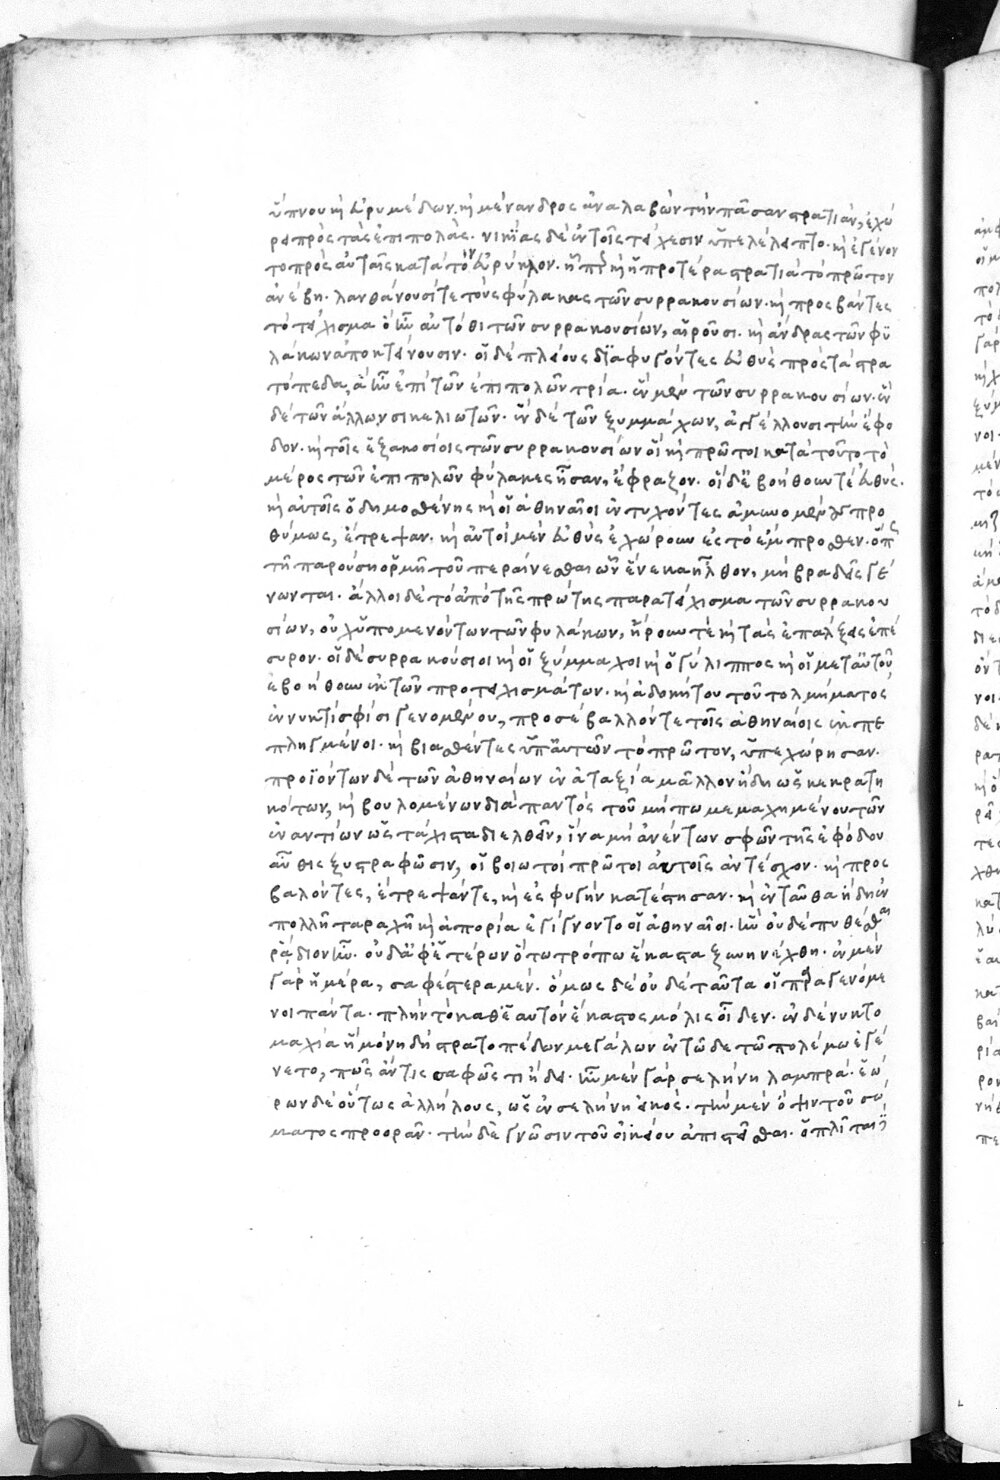 ὕπνου καὶ εὐρυμέδων καὶ μένανδρος ἀναλαβὼν τὴν πᾶσαν στρατιὰν, ἐχώ
ρει πρὸς τὰς ἐπιπολὰς. νικίας δὲ ἐν τοῖς τείχεσιν ὑπελέλειπτο. καὶ ἐγένον
το πρὸς αὐταῖς κατὰ τὸν εὐρύηλον. ᾗπερ καὶ ἡ προτέρα στρατιὰ τὸ πρῶτον
ἀνέβη. λανθάνουσί τε τοὺς φύλακας τῶν συρρακουσίων. καὶ προσβάντες
τὸ τείχισμα ὃ ἦν αὐτόθι τῶν συρρακουσίων, αἱροῦσι. καὶ ἄνδρας τῶν φυ
λάκων ἀποκτείνουσιν. οἱ δὲ πλείους διαφυγόντες εὐθὺς πρὸς τὰ στρα
τόπεδα, ἃ ἦν ἐπὶ τῶν ἐπιπολῶν τρία. ἓν μὲν τῶν συρρακουσίων. ἓν
δὲ τῶν ἄλλων σικελιωτῶν. ἓν δὲ τῶν ξυμμάχων, ἀγγέλλουσι τὴν ἔφο
δον. καὶ τοῖς ἑξακοσίοις τῶν συρρακουσίων οἳ καὶ πρῶτοι κατὰ τοῦτο τὸ
μέρος τῶν ἐπιπολῶν φύλακες ἦσαν, ἔφραζον. οἱ δὲ ἐβοήθουν τε εὐθὺς.
καὶ αὐτοῖς ὁ δημοσθένης καὶ οἱ ἀθηναῖοι ἐντυχόντες ἀμυνομένους προ
θύμως, ἔτρεψαν. καὶ αὐτοὶ μὲν εὐθὺς ἐχώρουν ἐς τὸ ἔμπροσθεν. ὅπως
τῇ παρούσῃ ὁρμῇ τοῦ περαίνεσθαι ὧν ἕνεκα ἦλθον, μὴ βραδεῖς γέ
νωνται. ἄλλοι δὲ τὸ ἀπὸ τῆς πρώτης παρατείχισμα τῶν συρρακου
σίων, οὐχ ὑπομενόντων τῶν φυλάκων, ᾕρουν τὲ καὶ τὰς ἐπάλξεις ἀπέ
συρον. οἱ δὲ συρρακούσιοι καὶ οἱ ξύμμαχοι καὶ ὁ γύλιππος καὶ οἱ μετ' αὐτοῦ
ἐβοήθουν ἐκ τῶν προτειχισμάτων. καὶ ἀδοκήτου τοῦ τολμήματος
ἐν νυκτὶ σφίσι γενομένου, προσέβαλλόν τε τοῖς ἀθηναίοις ἐκπε
πληγμένοι. καὶ βιασθέντες ὑπ' αὐτῶν τὸ πρῶτον, ὑπεχώρησαν.
προϊόντων δὲ τῶν ἀθηναίων ἐν ἀταξίᾳ μᾶλλον ἤδη ὡς κεκρατη
κότων, καὶ βουλομένων διὰ παντὸς τοῦ μήπω μεμαχημένου τῶν
ἐναντίων ὡς τάχιστα διελθεῖν, ἵνα μὴ ἀνέντων σφῶν τῆς ἐφόδου
αὖθις ξυστραφῶσιν, οἱ βοιωτοὶ πρῶτοι αὐτοῖς ἀντέσχον. καὶ προς
βαλόντες, ἔτρεψάν τε, καὶ ἐς φυγὴν κατέστησαν. καὶ ἐνταῦθα ἤδη ἐν
πολλῇ ταραχῇ καὶ ἀπορίᾳ ἐγίγνοντο οἱ ἀθηναῖοι. ἣν οὐδὲ πυθέσθαι
ῥᾴδιον ἦν. οὐδ' ἀφ' ἑτέρων ὅτῳ τρόπῳ ἕκαστα ξυνηνέχθη. ἐν μὲν
γὰρ ἡμέρᾳ, σαφέστερα μέν. ὅμως δὲ οὐδὲ ταῦτα οἱ παραγενόμε
νοι πάντα. πλὴν τὸ καθ' ἑαυτὸν ἕκαστος μόλις οἶδεν. ἐν δὲ νυκτο
μαχίᾳ ἣ μόνη δὴ στρατοπέδων μεγάλων ἐν τῷδε τῷ πολέμῳ ἐγέ
νετο, πῶς ἄν τις σαφῶς τι ᾔδει. ἦν μὲν γὰρ σελήνη λαμπρά. ἑώ
ρων δὲ οὕτως ἀλλήλους, ὡς ἐν σελήνῃ εἰκὸς. τὴν μὲν ὄψιν τοῦ σώ
ματος προορᾶν. τὴν δὲ γνῶσιν τοῦ οἰκείου ἀπιστεῖσθαι. ὁπλῖται